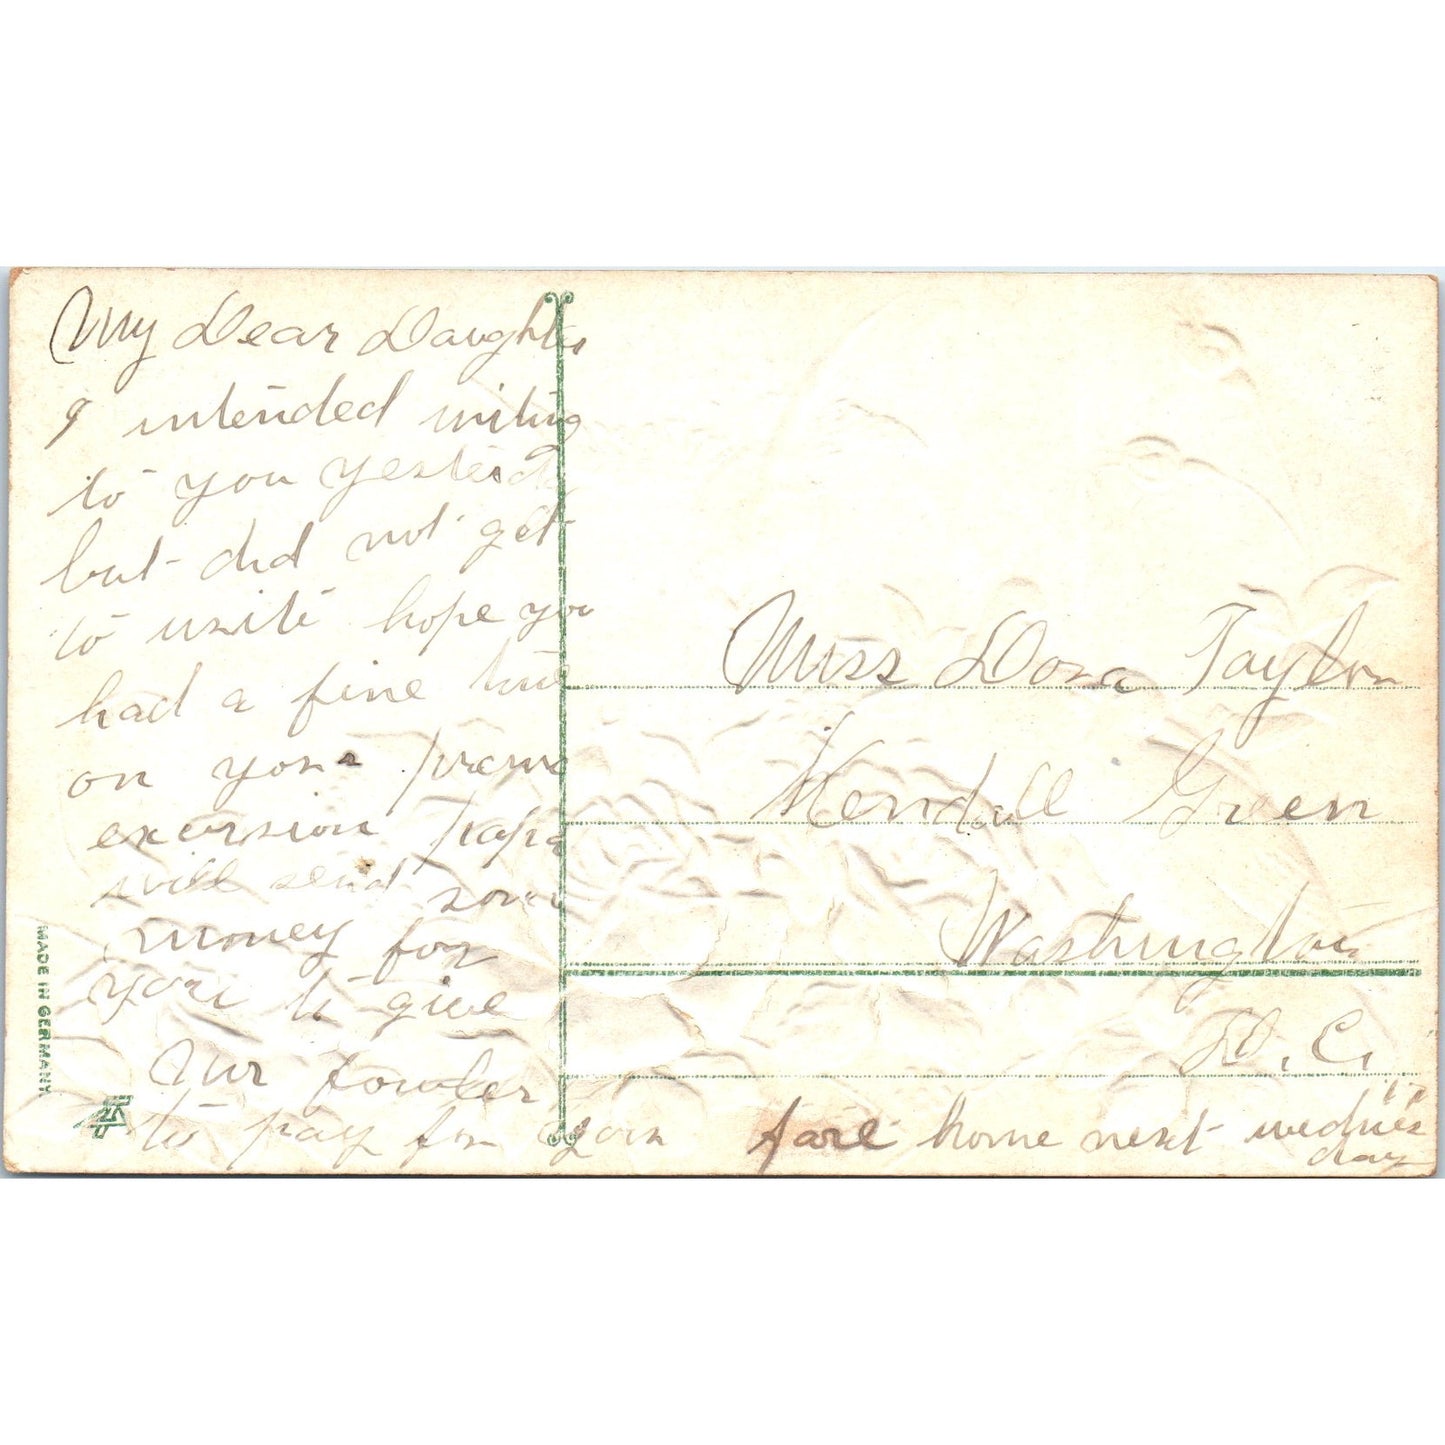 My Dear Daughter
I intended writing
to you yesterday
but did not get
to write hope you
had a fine time
on your
excursion papa
will send some
money for
you to give
Mr Fowler
to pay for your fare home next wednes
day
Miss Dora Taylor
Kendall Green
Washington
D. C.
MADE IN GERMANY